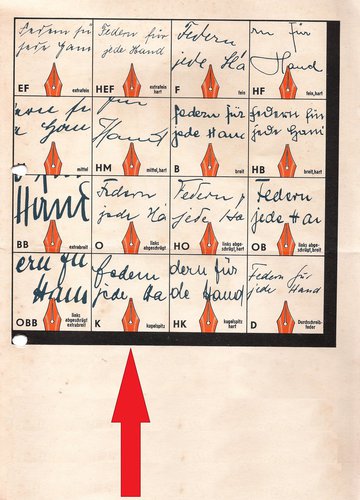 Federn fü
jede Han
EF
extrafein
Federn für
jede Hand
HEF
extrafein,
hart
Federn
jede Ha
F
fein
rn für
Hand
HF
fein, hart
ern fü
e Han
mittel
für
Hand
HM
mittel, hart
Federn für
jede Hand
B
breit
Federn für
jede Hand
HB
breit, hart
Hand
BB
extrabreit
Federn
jede Ha
O
links
abgeschrägt
Federn f
jede Ha
HO
links abge-
schrägt, hart
Federn
jede Han
OB
links abge-
schrägt, breit
ern fü
Han
OBB
links
abgeschrägt
extrabreit
Federn
jede Ha
K
kugelspitz
dern für
de Hand
HK
kugelspitz
hart
Federn für
jede Hand
D
Durchschreib-
feder